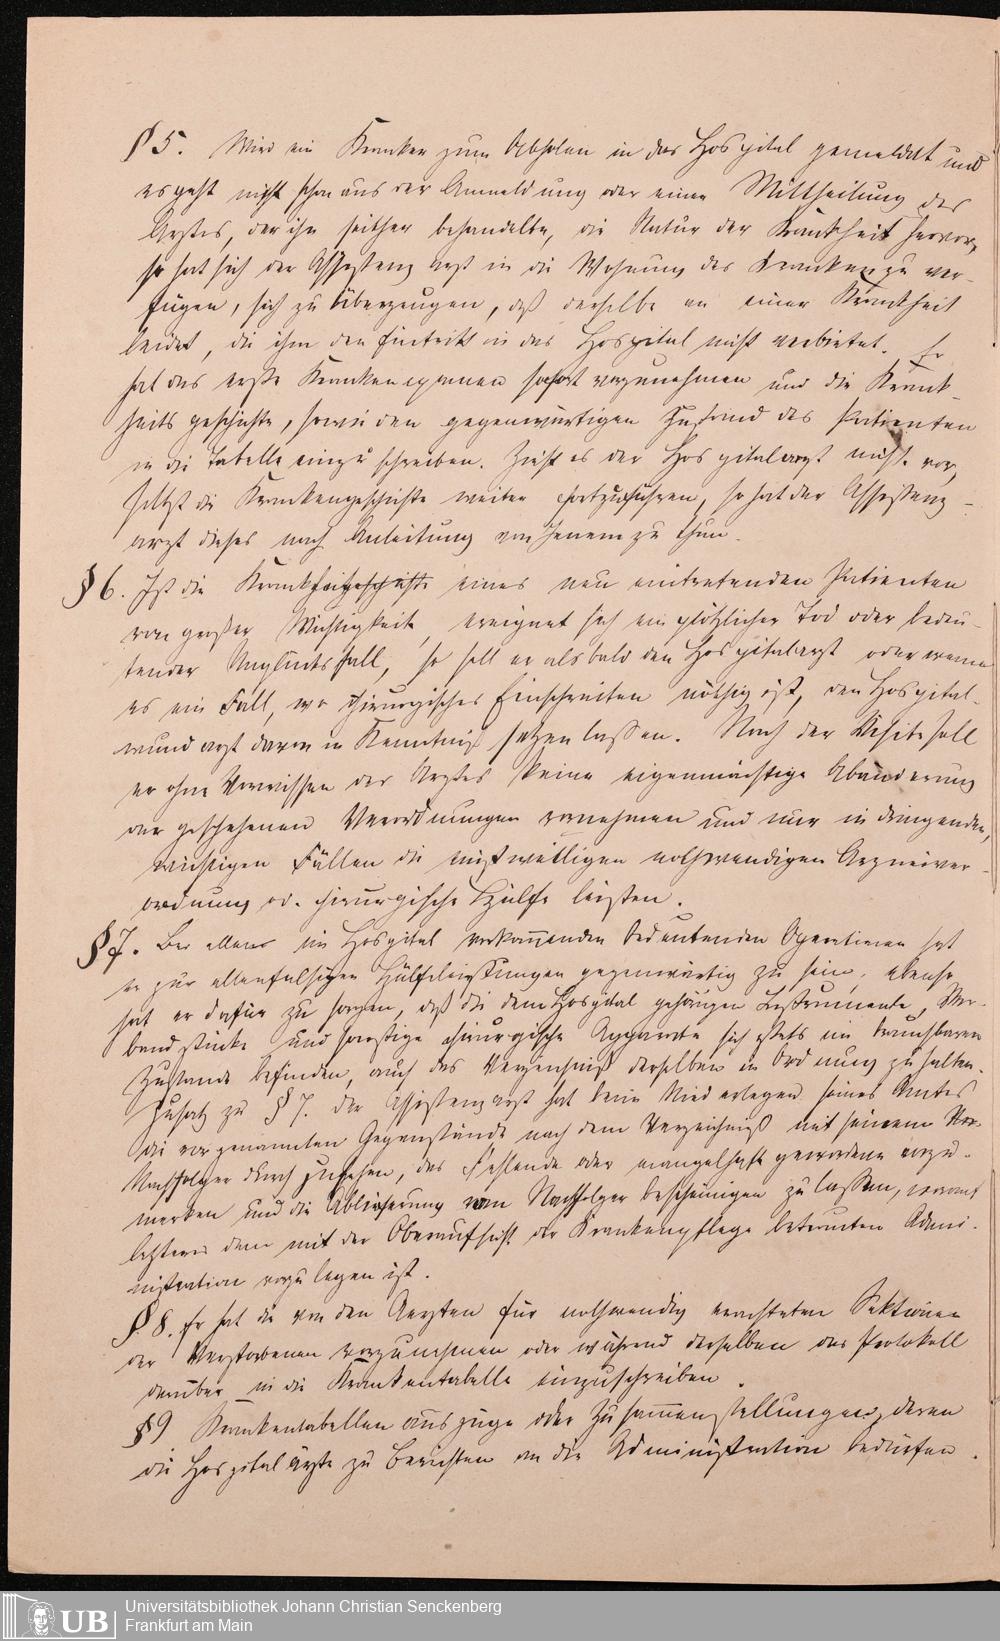 § 5. Wird ein Kranker zum Abholen in das Hospital gemeldet und
es geht nicht schon aus der Anmeldung oder einer Mittheilung des
Arztes, der ihn seither behandelte, die Natur der Krankheit hervor,
so hat sich der Assistenzarzt in die Wohnung des Kranken zu ver-
fügen, sich zu überzeugen, daß derselbe an einer Krankheit
leidet, die ihm den Eintritt in das Hospital nicht verbietet. Er
hat das erste Krankenexamen sofort vorzunehmen und die Krank-
heitsgeschichte, sowie den gegenwärtigen Zustand des Patienten
in die Tabelle einzuschreiben. Zieht es der Hospitalarzt nicht vor,
selbst die Krankengeschichte weiter fortzuführen, so hat der Assistenz-
arzt dieses nach Anleitung von Jenem zu thun.
§ 6. Ist die Krankheitsgeschichte eines neu eintretenden Patienten
von großer Wichtigkeit, ereignet sich ein plötzlicher Tod oder bedeu-
tender Unglücksfall, so soll er alsbald den Hospitalarzt oder wenn
es ein Fall, wo chirurgisches Einschreiten nöthig ist, den Hospital-
wundarzt davon in Kenntniß setzen lassen. Nach der Visite soll
er ohne Vorwissen des Arztes keine eigenmächtige Abänderung
der geschehenen Verordnungen vornehmen und nur in dringenden,
wichtigen Fällen die einstweiligen nothwendigen Arzneiver-
ordnung od. chirurgische Hülfe leisten.
§ 7. Bei allen im Hospital vorkommenden bedeutenden Operationen hat
er zur allenfalsigen Hülfeleistungen gegenwärtig zu sein, ebenso
hat er dafür zu sorgen, daß die dem Hospital gehörigen Instrumente, Ver-
bandstücke und sonstige chirurgische Apparate sich stets im brauchbaren
Zustande befinden, auch das Verzeichniß derselben in Ordnung zu halten.
Zusatz zu § 7. Der Assistenzarzt hat beim Niederlegen seines Amtes
die vorgenannten Gegenstände nach dem Verzeichniß mit seinem
Nachfolger durchzusehen, das Fehlende oder mangelhaft gewordene anzu-
merken und die Ablieferung vom Nachfolger bescheinigen zu lassen, womit
letzteres dem mit der Oberaufsicht der Krankenpflege betrauten Admi-
nistration vorzulegen ist.
§ 8. Er hat die von den Aerzten für nothwendig erachteten Sektionen
der Verstorbenen vorzunehmen oder während derselben das Protokoll
darüber in die Krankentabelle einzuschreiben.
§ 9 Krankentabellenauszüge oder Zusammenstellungen, deren
die Hospitalärzte zu Berichten an die Administration bedürfen.
UB Universitätsbibliothek Johann Christian Senckenberg
Frankfurt am Main